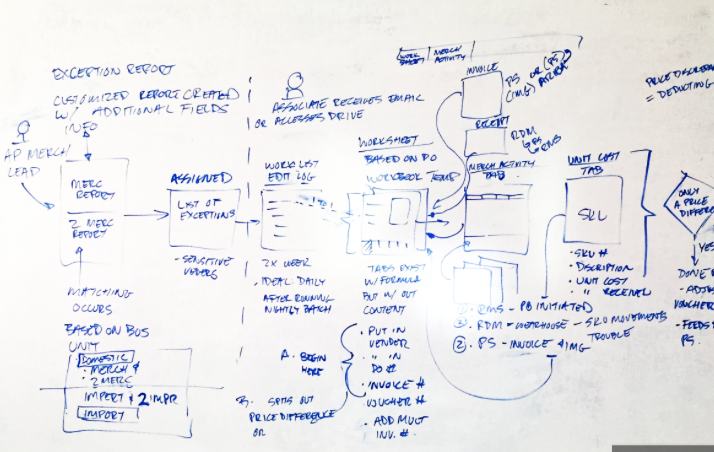 EXCEPTION REPORT
CUSTOMIZED REPORT CREATED
W/ ADDITIONAL FIELDS
INFO
AP MERCH
LEAD
MERC
REPORT
2 MERC
REPORT
MATCHING
OCCURS
BASED ON BUS
UNIT
DOMESTIC
MERCH &
2 MERC
IMPORT & 2 IMPR
IMPORT
ASSIGNED
LIST OF
EXCEPTIONS
- SENSITIVE
ASSOCIATE RECEIVES EMAIL
OR ACCESSES DRIVE
WORK LIST
EDIT LOG
2X WEEK
• IDEAL DAILY
AFTER RUNNING
NIGHTLY BATCH
A. BEGIN
HERE
B. SPITS OUT
PRICE DIFFERENCE
OR
WORKSHEET
BASED ON PO
WORKBOOK TEMP
TABS EXIST
W/ FORMULA
BUT W/ OUT
CONTENT
• PUT IN
VENDER
• " IN
PO #
• INVOICE #
VOUCHER #
• ADD MULT
INV. #
WORK
SHEET
MERCH
ACTIVITY
INVOICE
PS OR (PS)
(IMG)
RECEIPT
RDM
RMS
MERCH ACTIVITY
TAB
RMS - PO INITIATED
RDM - WAREHOUSE - SKU MOVEMENTS
TROUBLE
2. PS - INVOICE & IMG
UNIT COST
TAB
SKU
• SKU #
• DISCRIPTION
• UNIT COST
" RECEIVED
PRICE DISCREPA
= DEDUCTING
ONLY
A PRICE
DIFFERE
YES
DONE
- ADJU
VOUCHER
- FEEDS
PS.